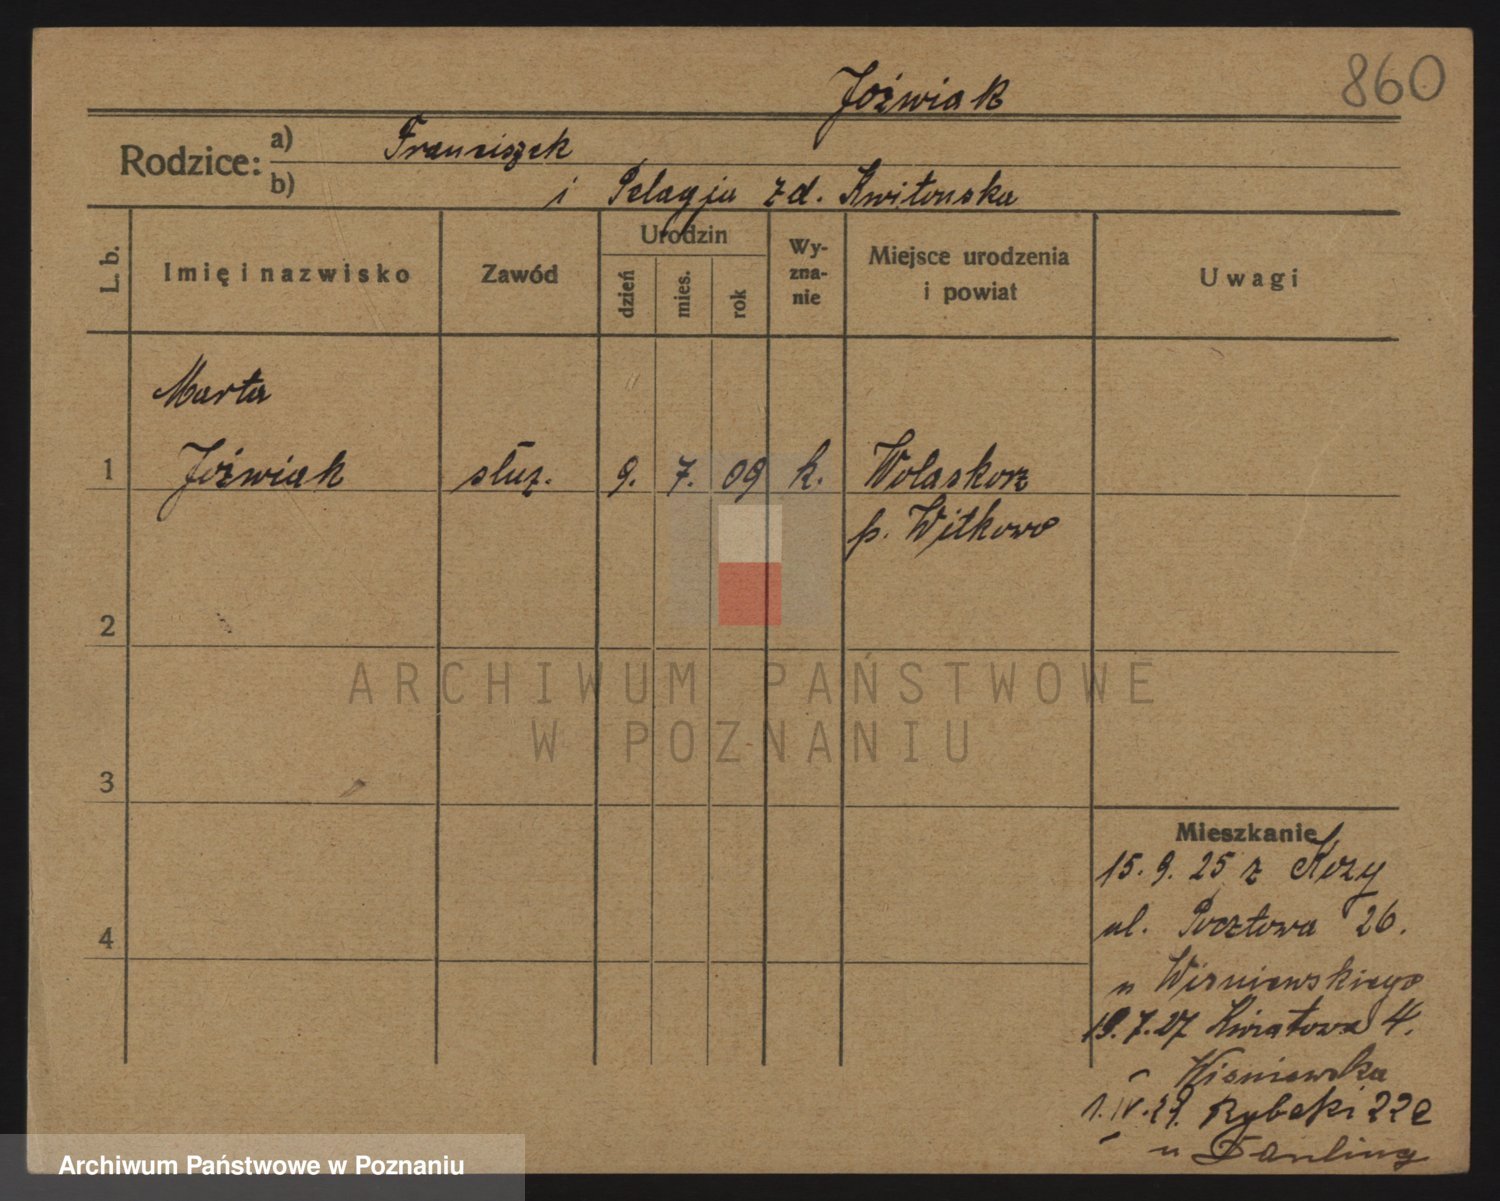 860
Jóźwiak
Rodzice:
a) Franciszek
b) i Pelagja zd. Kwitońska
L. b.
Imię i nazwisko
Zawód
Urodzin
dzień
mies.
rok
Wy-
zna-
nie
Miejsce urodzenia
i powiat
Uwagi
Marta
1 Jóźwiak służ. 9. 7. 09 k. Wolaskorz
p. Witkowo
2
3
4
ARCHIWUM PAŃSTWOWE
W POZNANIU
Mieszkanie
15. 9. 25 z Kozy
ul. Pocztowa 26.
u Wiśniewskiego
19.7.27 Kwiatowa 4.
Wiśniewska
1.IV.29. Rybaki 22c
u
Archiwum Państwowe w Poznaniu